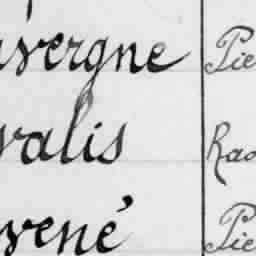 uvergne Pie
valis Rao
vené Pie